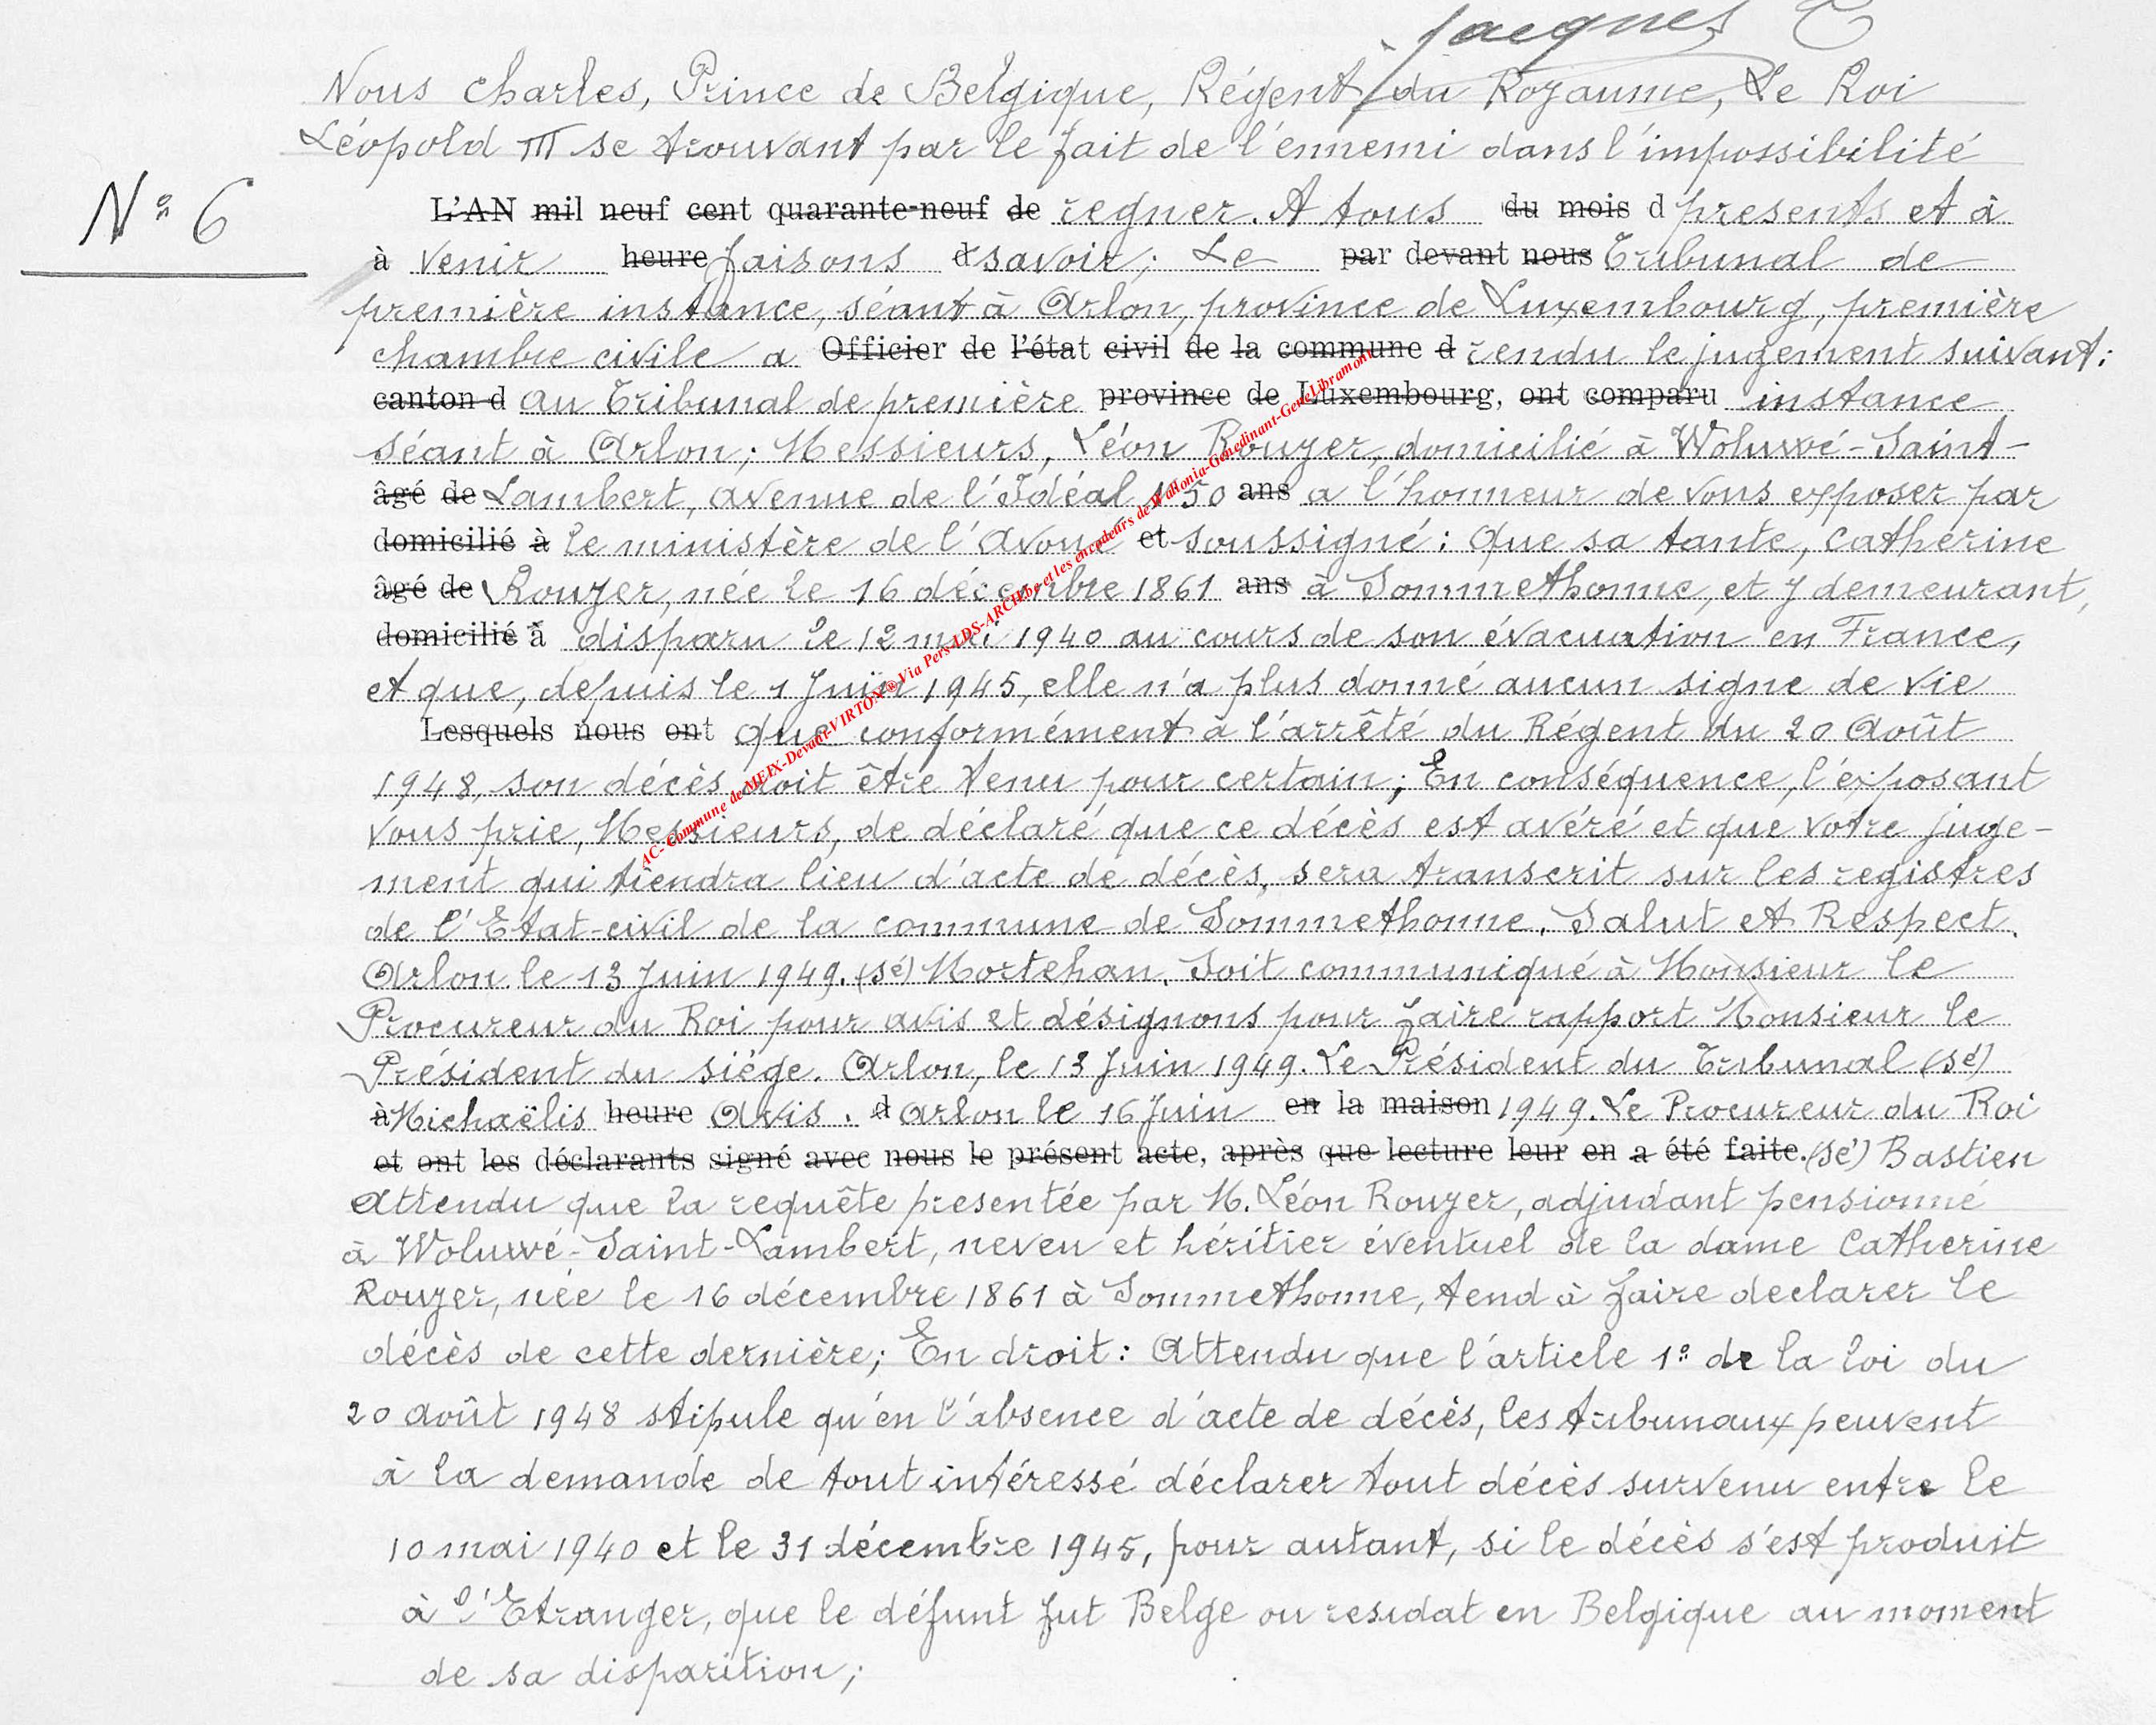 Jacques
Nous Charles, Prince de Belgique, Régent du Royaume, Le Roi
Léopold III se trouvant par le fait de l'ennemi dans l'impossibilité
N° 6
L'AN mil neuf cent quarante-neuf de regner. A tous du mois d presents et à
à venir heure faisons d savoir; Le par devant nous Tribunal de
première instance, séant à Arlon, province de Luxembourg, première
chambre civile a Officier de l'état civil de la commune d rendu le jugement suivant:
canton d au Tribunal de première province de Luxembourg, ont comparu instance
séant à Arlon; Messieurs, Léon Rouyer, domicilié à Woluwé-Saint-
âgé de Lambert, avenue de l'Idéal, 150 ans a l'honneur de vous exposer par
domicilié à le ministère de l'Avoué et soussigné: Que sa tante, Catherine
âgé de Rouyer, née le 16 décembre 1861 ans à Sommethonne, et y demeurant,
domicilié à disparu le 12 mai 1940 au cours de son évacuation en France,
et que, depuis le 1 Juin 1945, elle n'a plus donné aucun signe de vie
Lesquels nous ont que conformément à l'arrêté du Régent du 20 Août
1948, son décès doit être tenu pour certain; En conséquence, l'exposant
vous prie, Messieurs, de déclaré que ce décès est avéré et que votre juge-
ment qui tiendra lieu d'acte de décès, sera transcrit sur les registres
de l'Etat-civil de la commune de Sommethonne. Salut et Respect.
Arlon le 13 Juin 1949. (sé) Mortehan. Soit communiqué à Monsieur le
Procureur du Roi pour avis et désignons pour faire rapport Monsieur le
Président du siège. Arlon, le 13 Juin 1949. Le Président du Tribunal (sé)
à Michaëlis heure Avis. d Arlon le 16 Juin en la maison 1949. Le Procureur du Roi
et ont les déclarants signé avec nous le présent acte, après que lecture leur en a été faite. (sé) Bastien
Attendu que la requête presentée par M. Léon Rouyer, adjudant pensionné
à Woluwé-Saint-Lambert, neveu et héritier éventuel de la dame Catherine
Rouyer, née le 16 décembre 1861 à Sommethonne, tend à faire declarer le
décès de cette dernière; En droit: Attendu que l'article 1° de la loi du
20 août 1948 stipule qu'en l'absence d'acte de décès, les tribunaux peuvent
à la demande de tout intéressé déclarer tout décès survenu entre le
10 mai 1940 et le 31 décembre 1945, pour autant, si le décès s'est produit
à l'Etranger, que le défunt fut Belge ou residat en Belgique au moment
de sa disparition;
AC- Commune de MEIX-Devant-VIRTON ® Via Pers-LDS-ARCH.be et les encodeurs de Wallonia-Genedinant-GeneLibramont